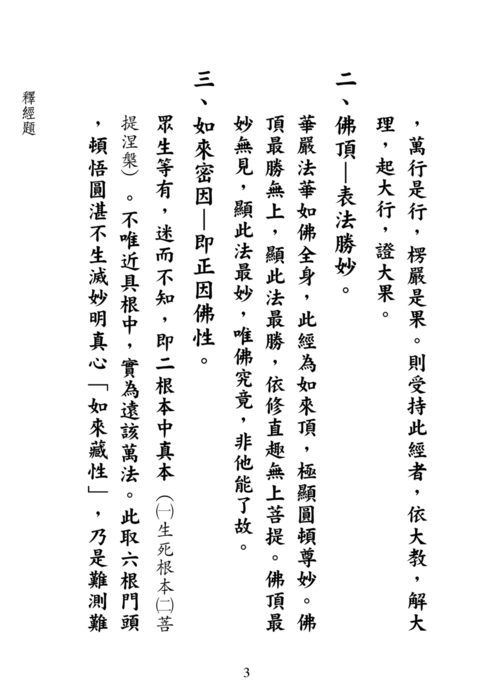 ，萬行是行，楞嚴是果。則受持此經者，依大教，解大
理，起大行，證大果。
二、佛頂—表法勝妙。
華嚴法華如佛全身，此經為如來頂，極顯圓頓尊妙。佛
頂最勝無上，顯此法最勝，依修直趣無上菩提。佛頂最
妙無見，顯此法最妙，唯佛究竟，非他能了故。
三、如來密因—即正因佛性。
眾生等有，迷而不知，即二根本中真本（㈠生死根本㈡菩
提涅槃）。不唯近具根中，實為遠該萬法。此取六根門頭
，頓悟圓湛不生滅妙明真心「如來藏性」，乃是難測難
釋經題
3